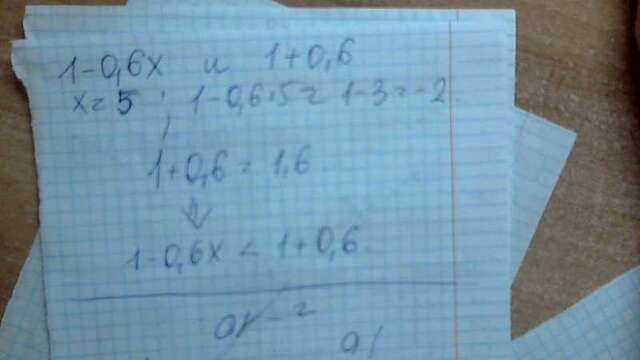 1-0,6x и 1+0,6
x=5; 1-0,6·5=1-3=-2
1+0,6=1,6
⇓
1-0,6x < 1+0,6.